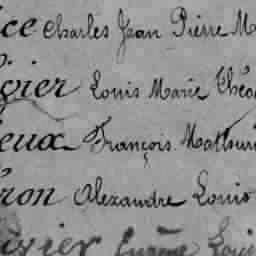 ice Charles Jean Pierre M
gier Louis Marie Théo
eux François Mathuri
ron Alexandre Louis
sier Eugène Loui